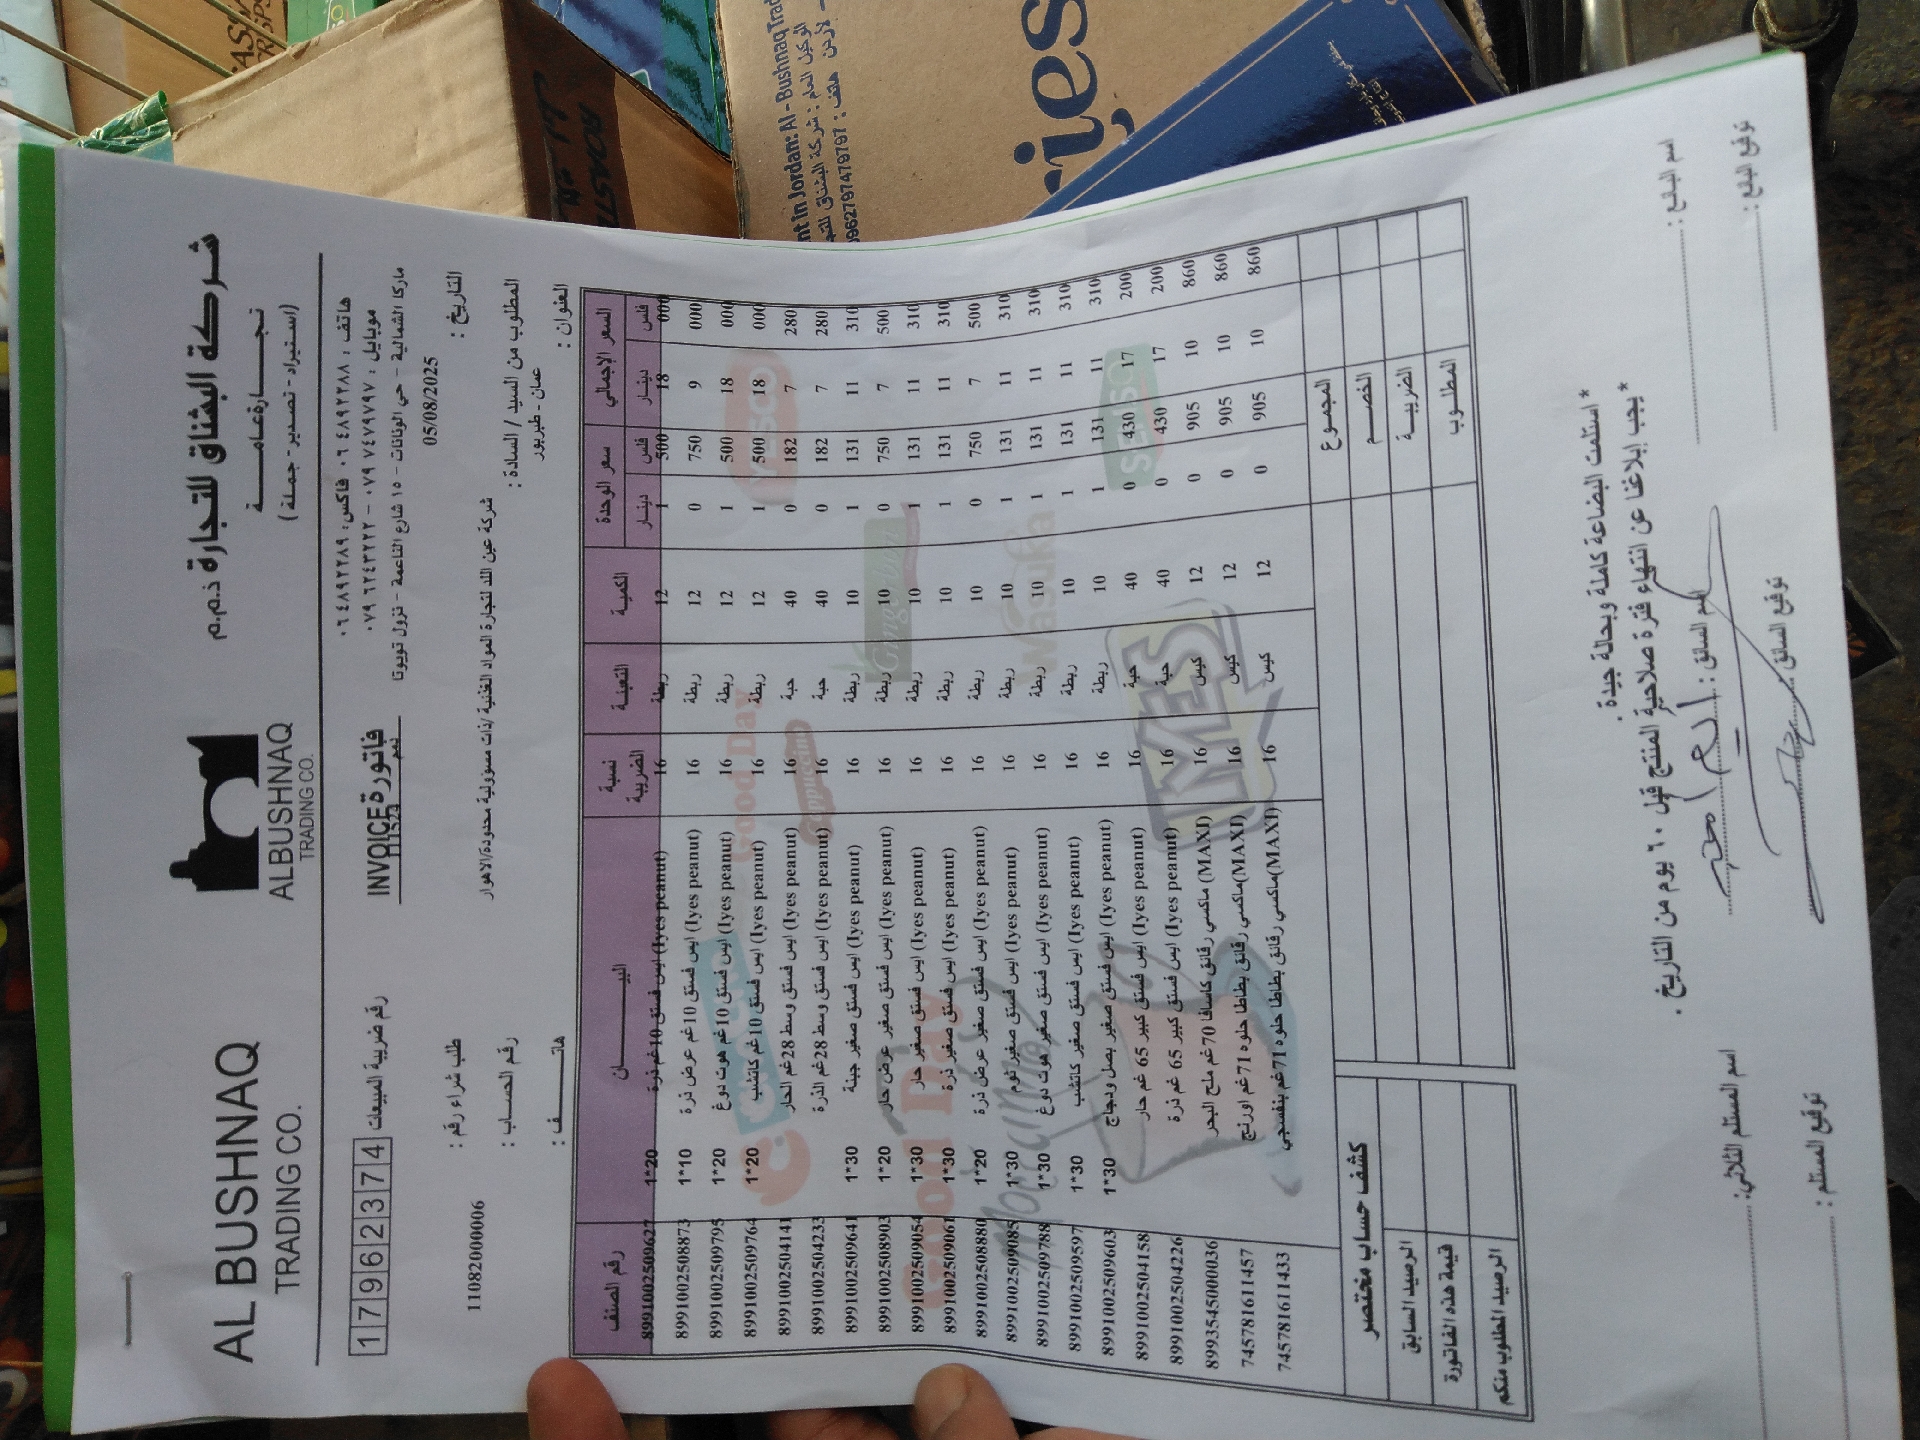 AL BUSHNAQ
TRADING CO.
ALBUSHNAQ
TRADING CO.
شركة البشناق للتجارة ذ.م.م
تجارة عامة
(استيراد - تصدير - جملة)
هاتف : ٠٦ ٤٨٩٢٣٨٨ فاكس: ٠٦ ٤٨٩٢٣٨٩
موبايل : ٠٧٩ ٧٤٧٩٧٩٧ - ٠٧٩ ٦٢٤٣٢٢٢
ماركا الشمالية - حي الونانات - ١٥ شارع الناعمة - نزول تويوتا
INVOICE فاتورة
ذمم
رقم ضريبة المبيعات 17962374
التاريخ : 05/08/2025
طلب شراء رقم :
المطلوب من السيد / السادة : شركة عين اللد لتجارة المواد الغذئية /ذات مسؤولية محدودة/الاهوار
رقم الحساب : 11082000006
العنوان : عمان - طبربور
هاتف :
رقم الصنف البيان نسبة الضريبة التعبئة الكمية سعر الوحدة السعر الإجمالي
دينار فلس دينار فلس
8991002509627 1*20 ايس فستق 10غم ذرة (Iyes peanut) 16 ربطة 12 1 500 18 000
8991002508873 1*10 ايس فستق 10غم عرض ذرة (Iyes peanut) 16 ربطة 12 0 750 9 000
8991002509795 1*20 ايس فستق 10غم هوت دوغ (Iyes peanut) 16 ربطة 12 1 500 18 000
8991002509764 1*20 ايس فستق 10غم كاتشب (Iyes peanut) 16 ربطة 12 1 500 18 000
8991002504141 ايس فستق وسط 28غم الحار (Iyes peanut) 16 حبة 40 0 182 7 280
8991002504233 ايس فستق وسط 28غم الذرة (Iyes peanut) 16 حبة 40 0 182 7 280
8991002509641 1*30 ايس فستق صغير جبنة (Iyes peanut) 16 ربطة 10 1 131 11 310
8991002508903 1*20 ايس فستق صغير عرض حار (Iyes peanut) 16 ربطة 10 0 750 7 500
8991002509054 1*30 ايس فستق صغير حار (Iyes peanut) 16 ربطة 10 1 131 11 310
8991002509061 1*30 ايس فستق صغير ذرة (Iyes peanut) 16 ربطة 10 1 131 11 310
8991002508880 1*20 ايس فستق صغير عرض ذرة (Iyes peanut) 16 ربطة 10 0 750 7 500
8991002509085 1*30 ايس فستق صغير ثوم (Iyes peanut) 16 ربطة 10 1 131 11 310
8991002509788 1*30 ايس فستق صغير هوت دوغ (Iyes peanut) 16 ربطة 10 1 131 11 310
8991002509597 1*30 ايس فستق صغير كاتشب (Iyes peanut) 16 ربطة 10 1 131 11 310
8991002509603 1*30 ايس فستق صغير بصل ودجاج (Iyes peanut) 16 ربطة 10 1 131 11 310
8991002504158 ايس فستق كبير 65 غم حار (Iyes peanut) 16 حبة 40 0 430 17 200
8991002504226 ايس فستق كبير 65 غم ذرة (Iyes peanut) 16 حبة 40 0 430 17 200
8993545000036 ماكسي رقائق كاسافا 70غم ملح البحر (MAXI) 16 كيس 12 0 905 10 860
745781611457 ماكسي رقائق بطاطا حلوه 71غم اورنج (MAXI) 16 كيس 12 0 905 10 860
745781611433 ماكسي رقائق بطاطا حلوه 71غم بنفسجي (MAXI) 16 كيس 12 0 905 10 860
كشف حساب مختصر
الرصيد السابق
قيمة هذه الفاتورة
الرصيد المطلوب منكم
المجموع
الخصم
الضريبة
المطلوب
* استلمت البضاعة كاملة وبحالة جيدة .
* يجب إبلاغنا عن انتهاء فترة صلاحية المنتج قبل ٦٠ يوم من التاريخ .
اسم المستلم الثلاثي: اسم السائق: اسم البائع :
توقيع المستلم : توقيع السائق : توقيع البائع :
YESCO
Good Day
Gingerbon
Wasuka
SENSO
IYES
Good Day
nt in Jordan: Al - Bushnaq Trad
الوكيل العام : شركة البشناق للتج
ROAST